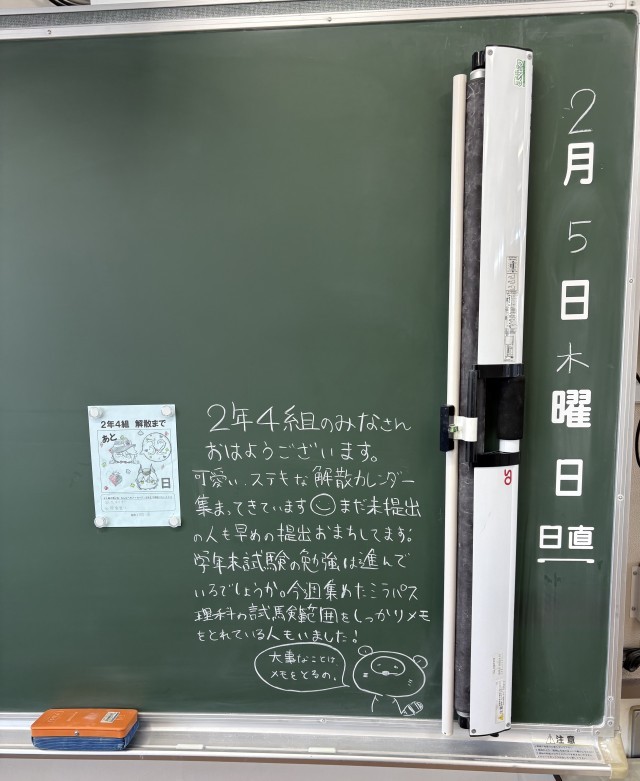 2年4組のみなさん
おはようございます。
可愛い、ステキな解散カレンダー
集まってきています まだ未提出
の人も早めの提出おまちしてます。
学年末試験の勉強は進んで
いるでしょうか。今週集めたミラパス
理科の試験範囲をしっかりメモ
をとれている人もいました!
大事なことは、
メモをとるの。
2年4組 解散まで
あと
日
2
月
5
日
木
曜
日
日直
注意